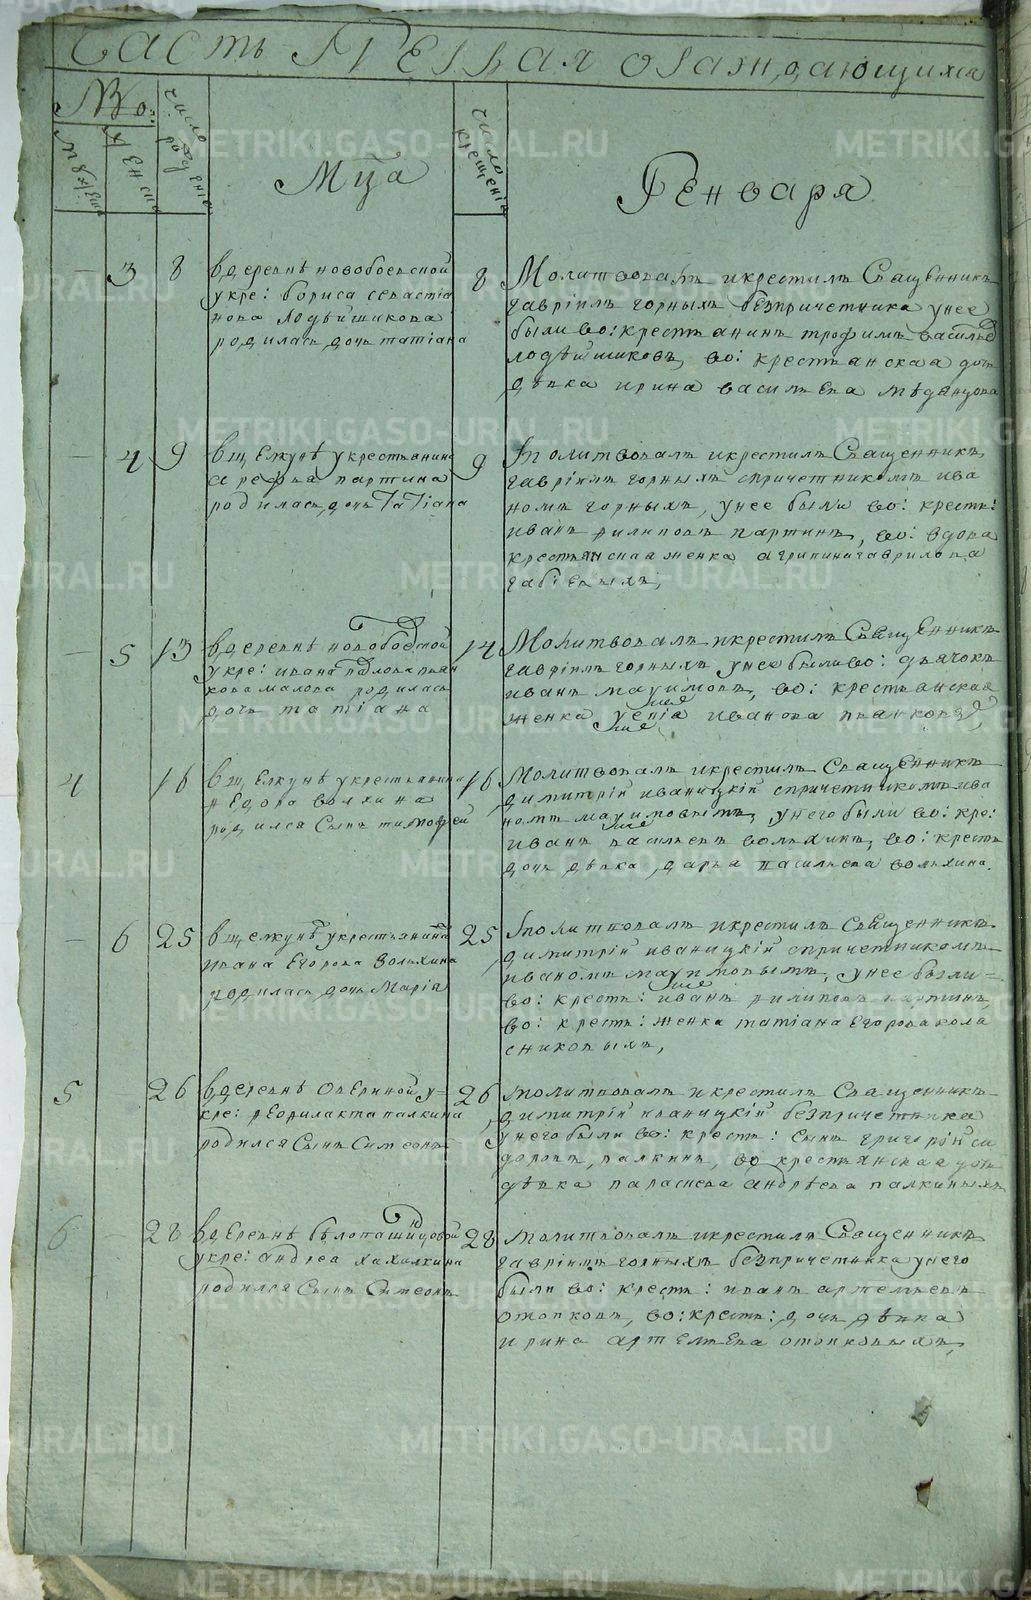 Часть Первая о раждающихся
№о:
мужеска
женска
число рожденія
Мца
число крещенія
Генваря
3 8
в деревнѣ новобоевской
у кре: бориса севастіа
нова
родилась дочь татіана
8
Молитвовалъ и крестилъ Священникъ
гавріилъ горныхъ безпричетника у нее
были во: крестьянинъ трофимъ василье
во: крестьянская дочь
дѣвка ирина васильева
4 9
в щелкунѣ у крестьянина
партина
родилась дочь Татіана
9
молитвовалъ и крестилъ Священникъ
гавріилъ горныхъ с причетникомъ ива
номъ горныхъ, у нее были во: кресть:
иванъ филиповъ партинъ, во: вдова
крестьянская женка агрипина гаврилова
5 13
в деревнѣ новобоевской
у кре: ивана павлова пьян
кова малова родилась
дочь татіана
14
Молитвовалъ и крестилъ Священникъ
гавріилъ горныхъ у нее были во: дьячокъ
иванъ маѯимовъ, во: крестьянская
женка иванова пьянкова
4 16
в щелкунѣ у крестьянина
родился Сынъ тимофей
16
Молитвовалъ и крестилъ Священникъ
димитрій иваницкій с причетникомъ ива
номъ маѯимовымъ, у него были во: кре:
иванъ васильевъ вольхинъ, во: кресть
дочь дѣвка дарья васильева вольхина.
6 25
в щелкунѣ у крестьянина
ивана Егорова Вольхина
родилась дочь Марія
25
молитвовалъ и крестилъ Священникъ
димитрій иваницкій с причетникомъ
иваномъ маѯимовымъ, у нее были
во: кресть: иванъ филиповъ партинъ,
во: кресть: женка татіана Егорова кола
сниковыхъ,
5 26
в деревнѣ Оверинoй у
кре: феофилакта палкина
родился Сынъ Симеонъ
26
молитвовалъ и крестилъ Священникъ
димитрій иваницкій безпричетника
у него были во: кресть: сынъ григорій си
доровъ, палкинъ, во крестьянская дочь
дѣвка параскева андрѣева палкиныхъ
6 28
в деревнѣ
у кре: андреа хахалкина
родился Сынъ Симеонъ
28
молитвовалъ и крестилъ Священникъ
гавріилъ горныхъ безпричетника у него
были во: кресть: иванъ артемьевъ
отопковъ, во: кресть: дочь дѣвка
ирина артемьева отопковыхъ,
METRIKI.GASO-URAL.RU